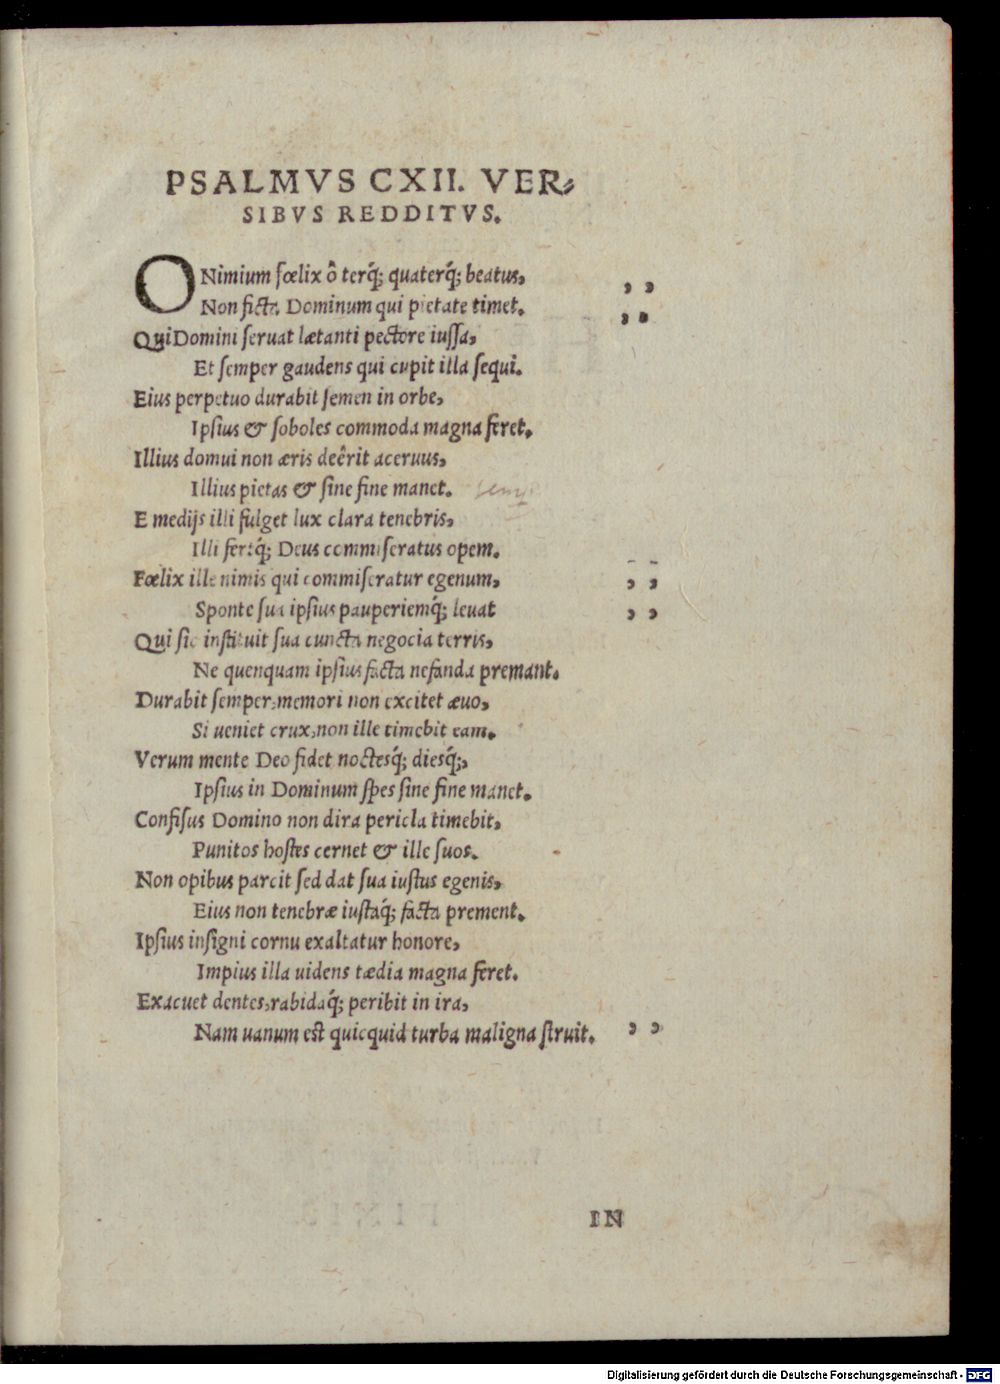 PSALMVS CXII. VER-
SIBVS REDDITVS.
O Nimium fœlix ô terq́; quaterq́; beatus,
Non ficta Dominum qui pietate timet.
Qui Domini seruat lætanti pectore iussa,
Et semper gaudens qui cupit illa sequi.
Eius perpetuo durabit semen in orbe,
Ipsius & soboles commoda magna feret.
Illius domui non æris deêrit aceruus,
Illius pietas & sine fine manet.
E medijs illi fulget lux clara tenebris,
Illi fertq́; Deus commiseratus opem.
Fœlix ille nimis qui commiseratur egenum,
Sponte sua ipsius pauperiemq́; leuat
Qui sic instituit sua cuncta negocia terris,
Ne quenquam ipsius facta nefanda premant.
Durabit semper, memori non excitet æuo,
Si ueniet crux, non ille timebit eam.
Verum mente Deo fidet noctesq́; diesq́;,
Ipsius in Dominum spes sine fine manet.
Confisus Domino non dira pericla timebit,
Punitos hostes cernet & ille suos.
Non opibus parcit sed dat sua iustus egenis,
Eius non tenebræ iustaq́; facta prement.
Ipsius insigni cornu exaltatur honore,
Impius illa uidens tædia magna feret.
Exacuet dentes, rabidaq́; peribit in ira,
Nam uanum est quicquid turba maligna struit.
IN
Digitalisierung gefördert durch die Deutsche Forschungsgemeinschaft - DFG